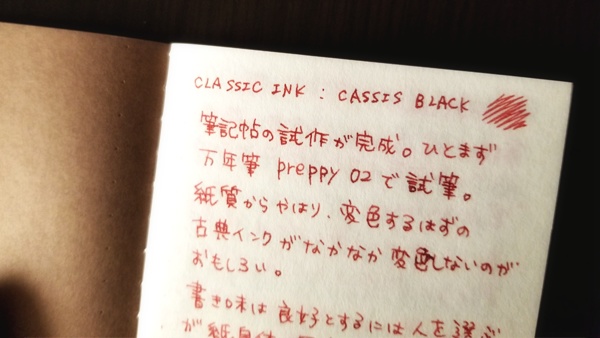 CLASSIC INK : CASSIS BLACK
筆記帖の試作が完成。ひとまず
万年筆 preppy 02 で試筆。
紙質からやはり、変色するはずの
古典インクがなかなか変色しないのが
おもしろい。
書き味は良好とするには人を選ぶ
が紙自体